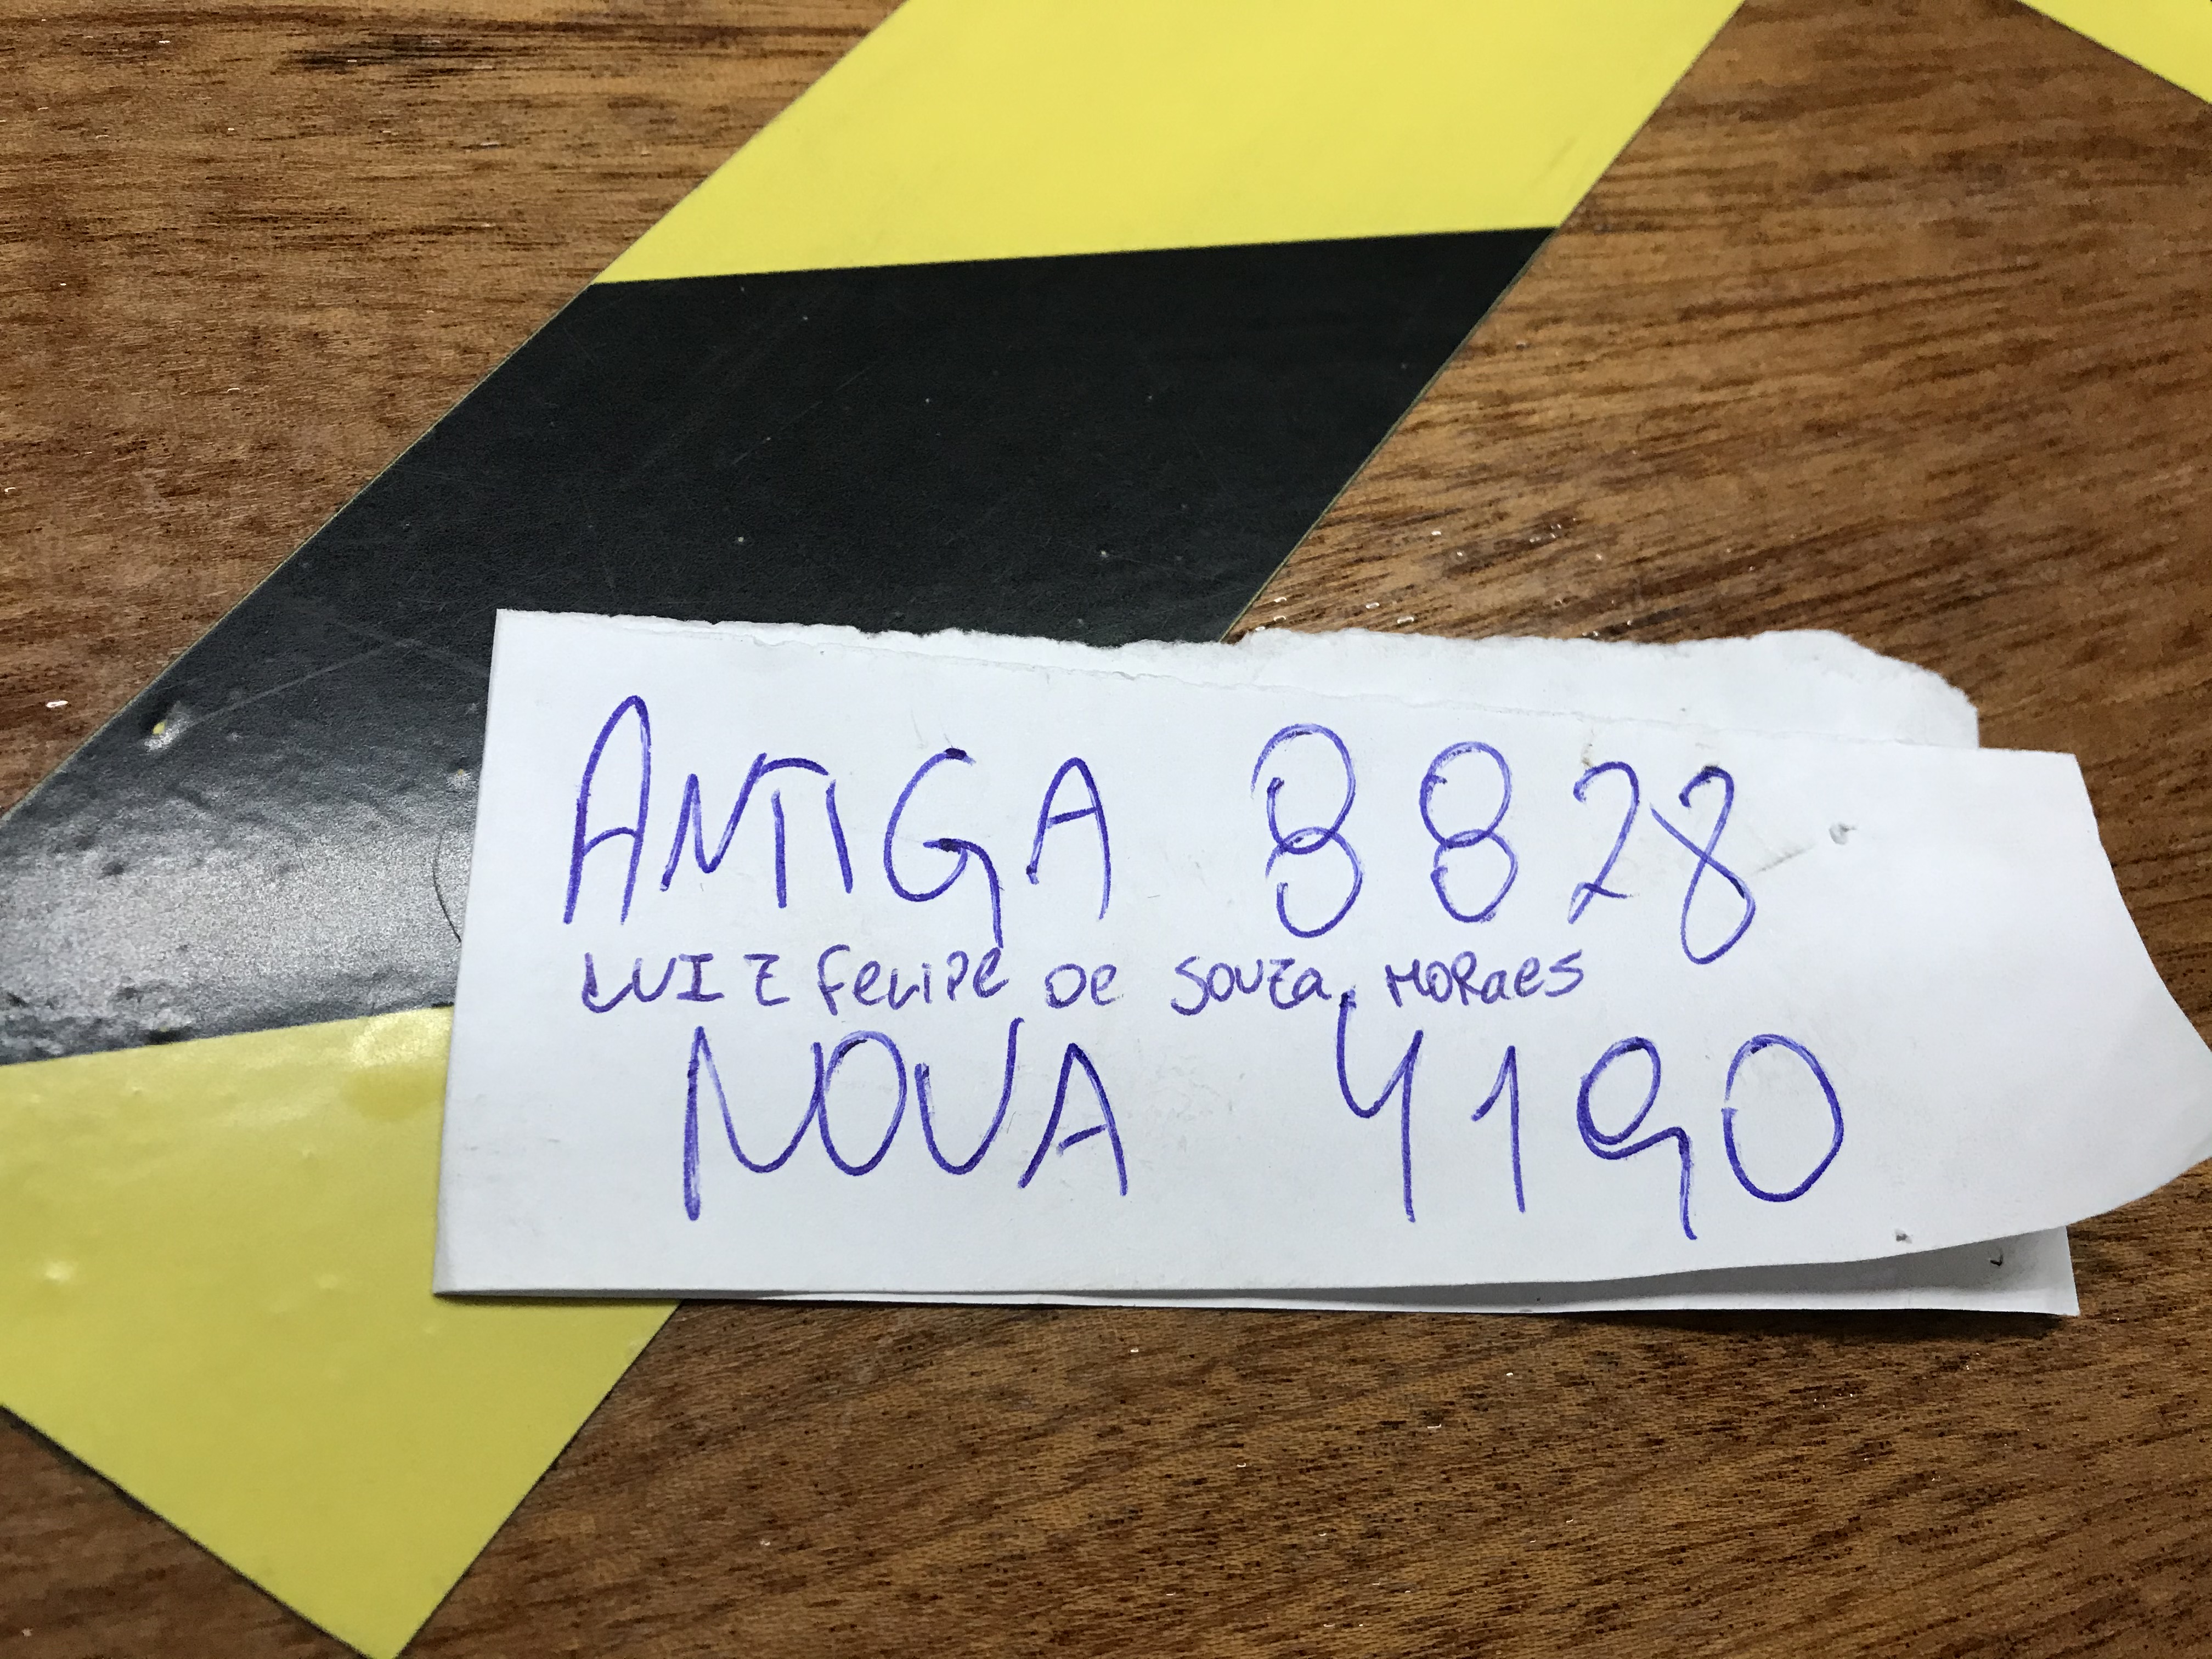 ANTIGA 8828
LUIZ Felipe De Souza Moraes
NOVA 4190